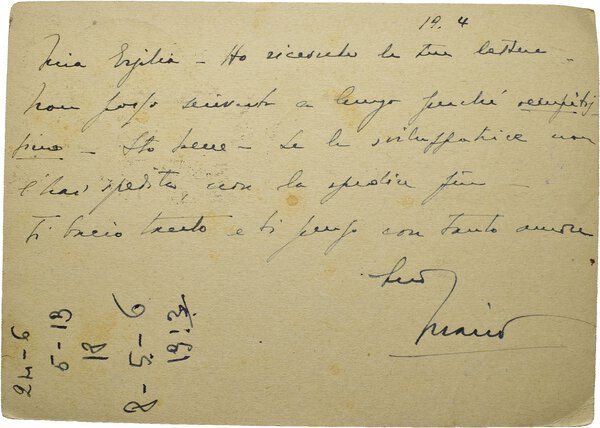 19. 4
Mia Ersilia - Ho ricevuto le tue lettere -
Non posso scriverti a lungo perché occupatis-
simo - Sto bene - Se la sviluppatrice non
l'hai spedita, non la spedire più -
Ti bacio tanto e ti penso con tanto amore
tuo
Mario
24-6
5-13
18
8-5-6